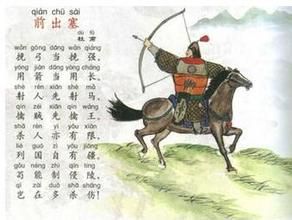 qián chū sài
前出塞
dù fǔ
杜甫
wǎn gōng dāng wǎn qiáng
挽弓当挽强，
yòng jiàn dāng yòng cháng
用箭当用长。
shè rén xiān shè mǎ
射人先射马，
qín zéi xiān qín wáng
擒贼先擒王。
shā rén yì yǒu xiàn
杀人亦有限，
liè guó zì yǒu jiāng
列国自有疆。
gǒu néng zhì qīn líng
苟能制侵陵，
qǐ zài duō shā shāng
岂在多杀伤！